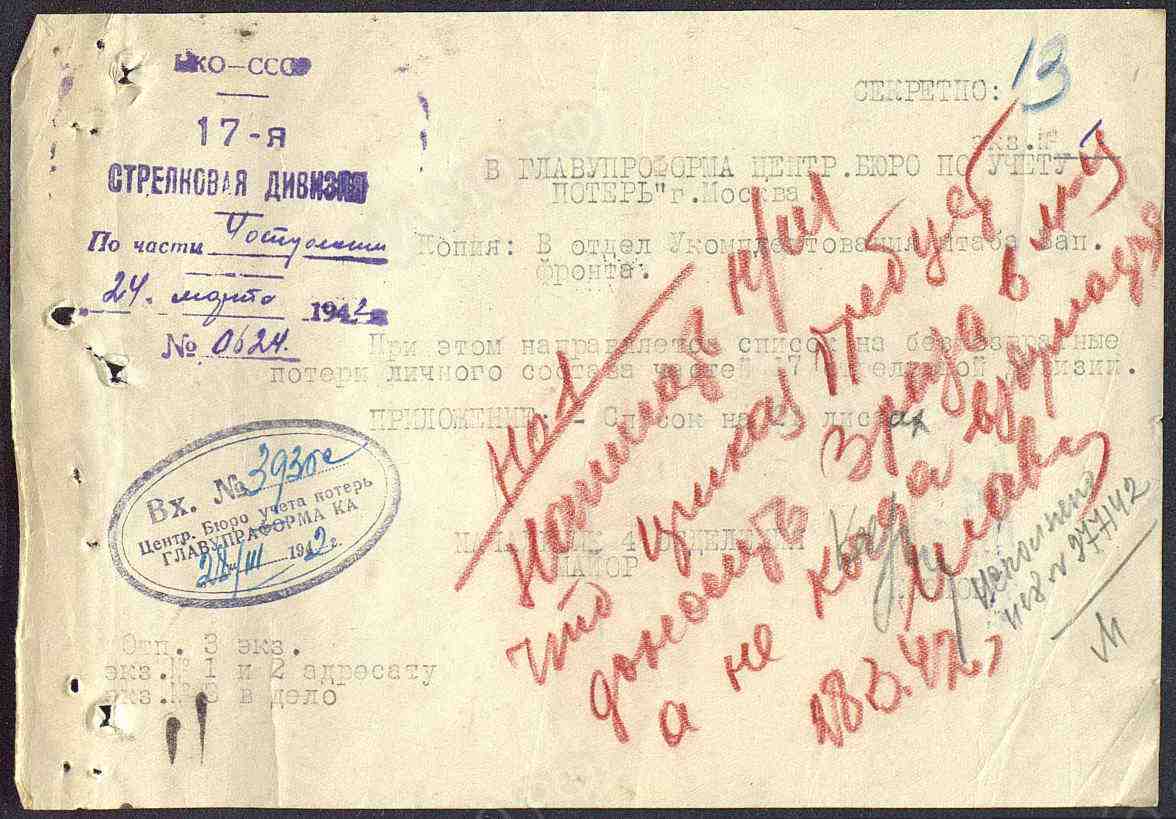 НКО—СССР
17-я
СТРЕЛКОВАЯ ДИВИЗИЯ
По части
24. марта 1942
№ 0624.
13
СЕКРЕТНО:
экз.№
В ГЛАВУПРОФОРМА ЦЕНТР.БЮРО ПО УЧЕТУ
ПОТЕРЬ" г.Москва
Копия: В отдел Укомплектования штаба Зап.
фронта.
При этом направляется список на безвозвратные
потери личного состава частей 17 стрелковой дивизии.
ПРИЛОЖЕНИЕ: - Список на листах
НАЧАЛЬНИК 4 ОТДЕЛЕНИЯ
МАЙОР
Вх. №
Центр. Бюро учета потерь
ГЛАВУПРАФОРМА КА
28/III 1942 г.
Отп. 3 экз.
экз.№ 1 и 2 адресату
экз.№ 3 в дело
но-1
Напишите н/ш
что приказ требует
доносить 3 раза в м-ц
а не когда вздумается
28.3.42
Исполнено
исх № 277142